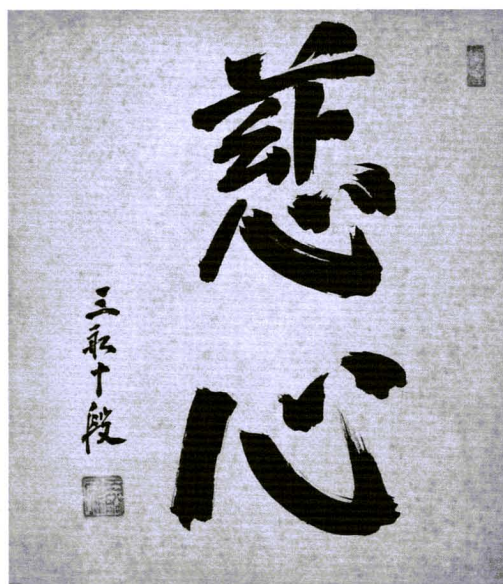 慈心
三船十段